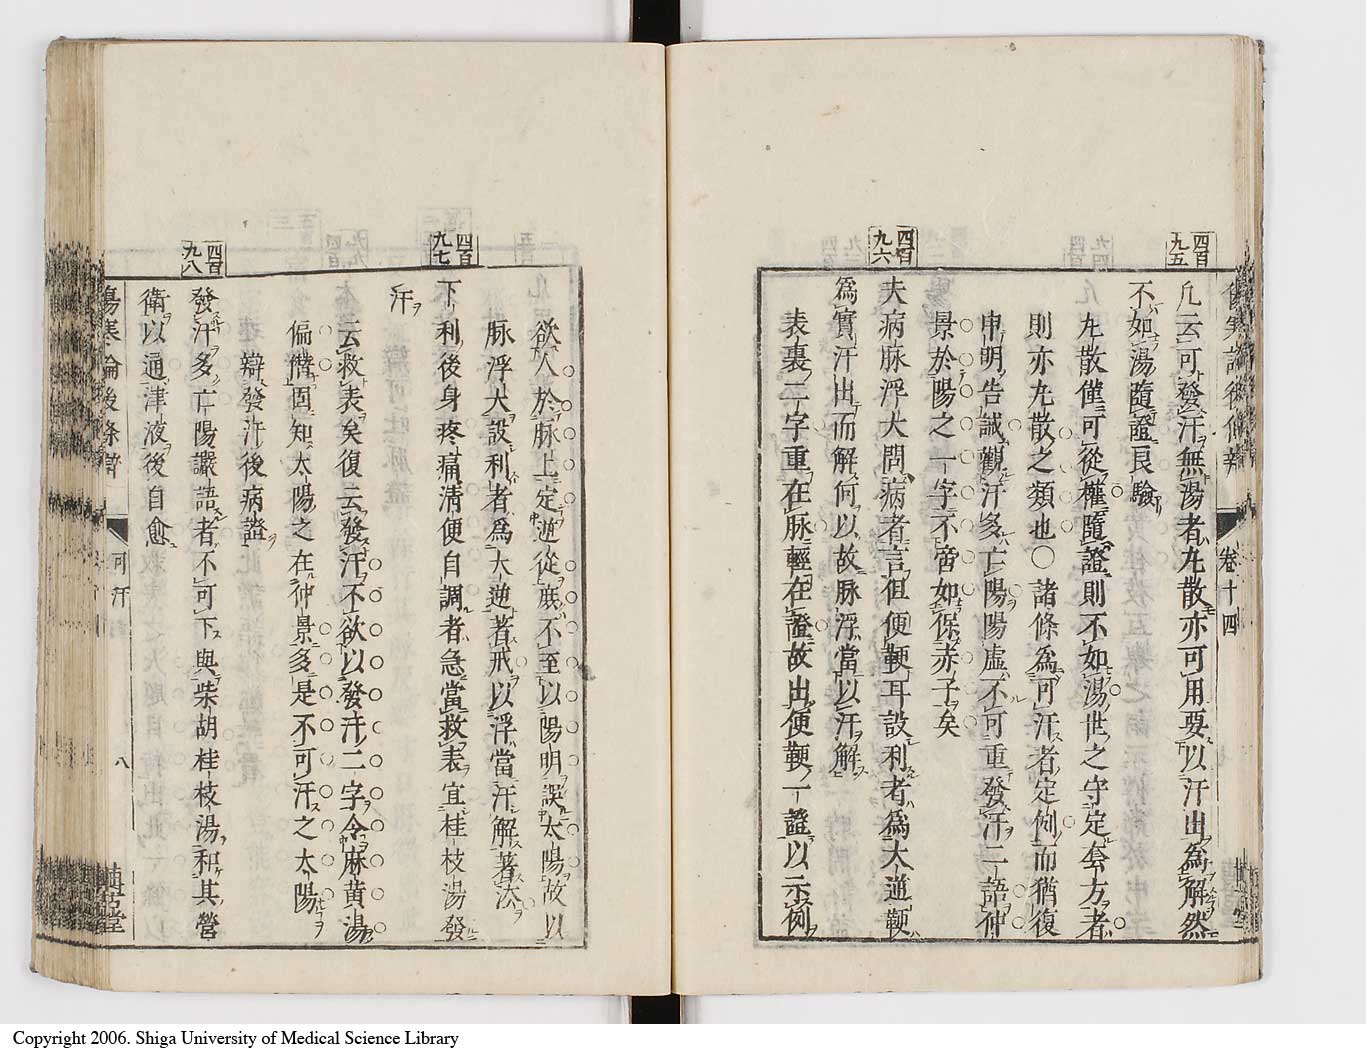 四百九五
凢云可發汗無湯者丸散亦可用要以汗出爲解然
不如湯隨證良驗
丸散僅可從權隨證則不如湯世之守定套方者
則亦丸散之類也○諸條爲可汗者定例而猶復
申明告誡觀汗多亡陽陽虛不可重發汗二語仲
景於陽之一字不啻如保赤子矣
四百九六
夫病脉浮大問病者言但便鞕耳設利者爲大逆鞕
爲實汗出而解何以故脉浮當以汗解
表裏二字重在脉輕在證故出便鞕一證以示例
卷十四
欲人於脉上定逆從庶不至以陽明誤太陽故以
脉浮大設利者爲大逆著戒以浮當汗解著法
四百九七
下利後身疼痛淸便自調者急當救表宜桂枝湯發
汗
云救表矣復云發汗不欲以發汗二字令麻黄湯
偏僭固知太陽之在仲景多是不可汗之太陽
辯發汗後病證
四百九八
發汗多亡陽讝語者不可下與柴胡桂枝湯和其營
衛以通津液後自愈
傷寒論後條辯
可汗
八
Copyright 2006. Shiga University of Medical Science Library